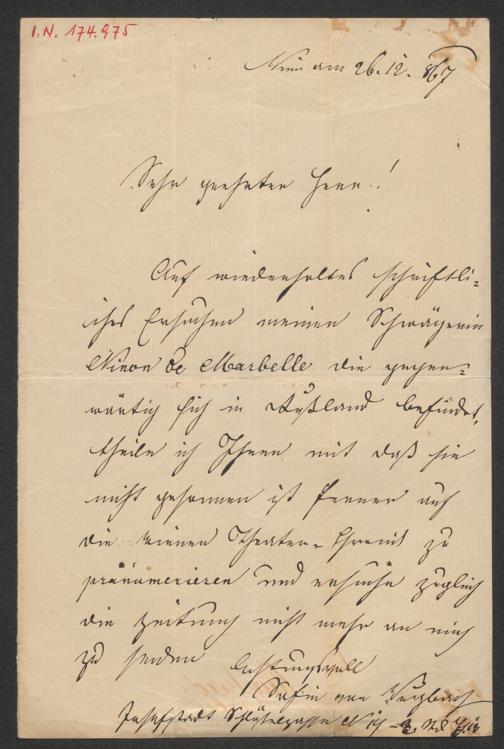 I.N. 174.975
Wien am 26.12. 867
Sehr geehrter Herr!
Auf wiederholtes schriftli-
ches Ersuchen meiner Schwägerin
Ninon de Marbelle die gegen-
wärtig sich in Rußland befindet,
theile ich Ihnen mit daß sie
nicht gesonnen ist ferner auf
die Wiener Theater-Chronik zu
pränumerieren und ersuche zugleich
die Zeitung nicht mehr an mich
zu senden Achtungsvoll
Sofie von
Josefstadt Schlößelgasse N